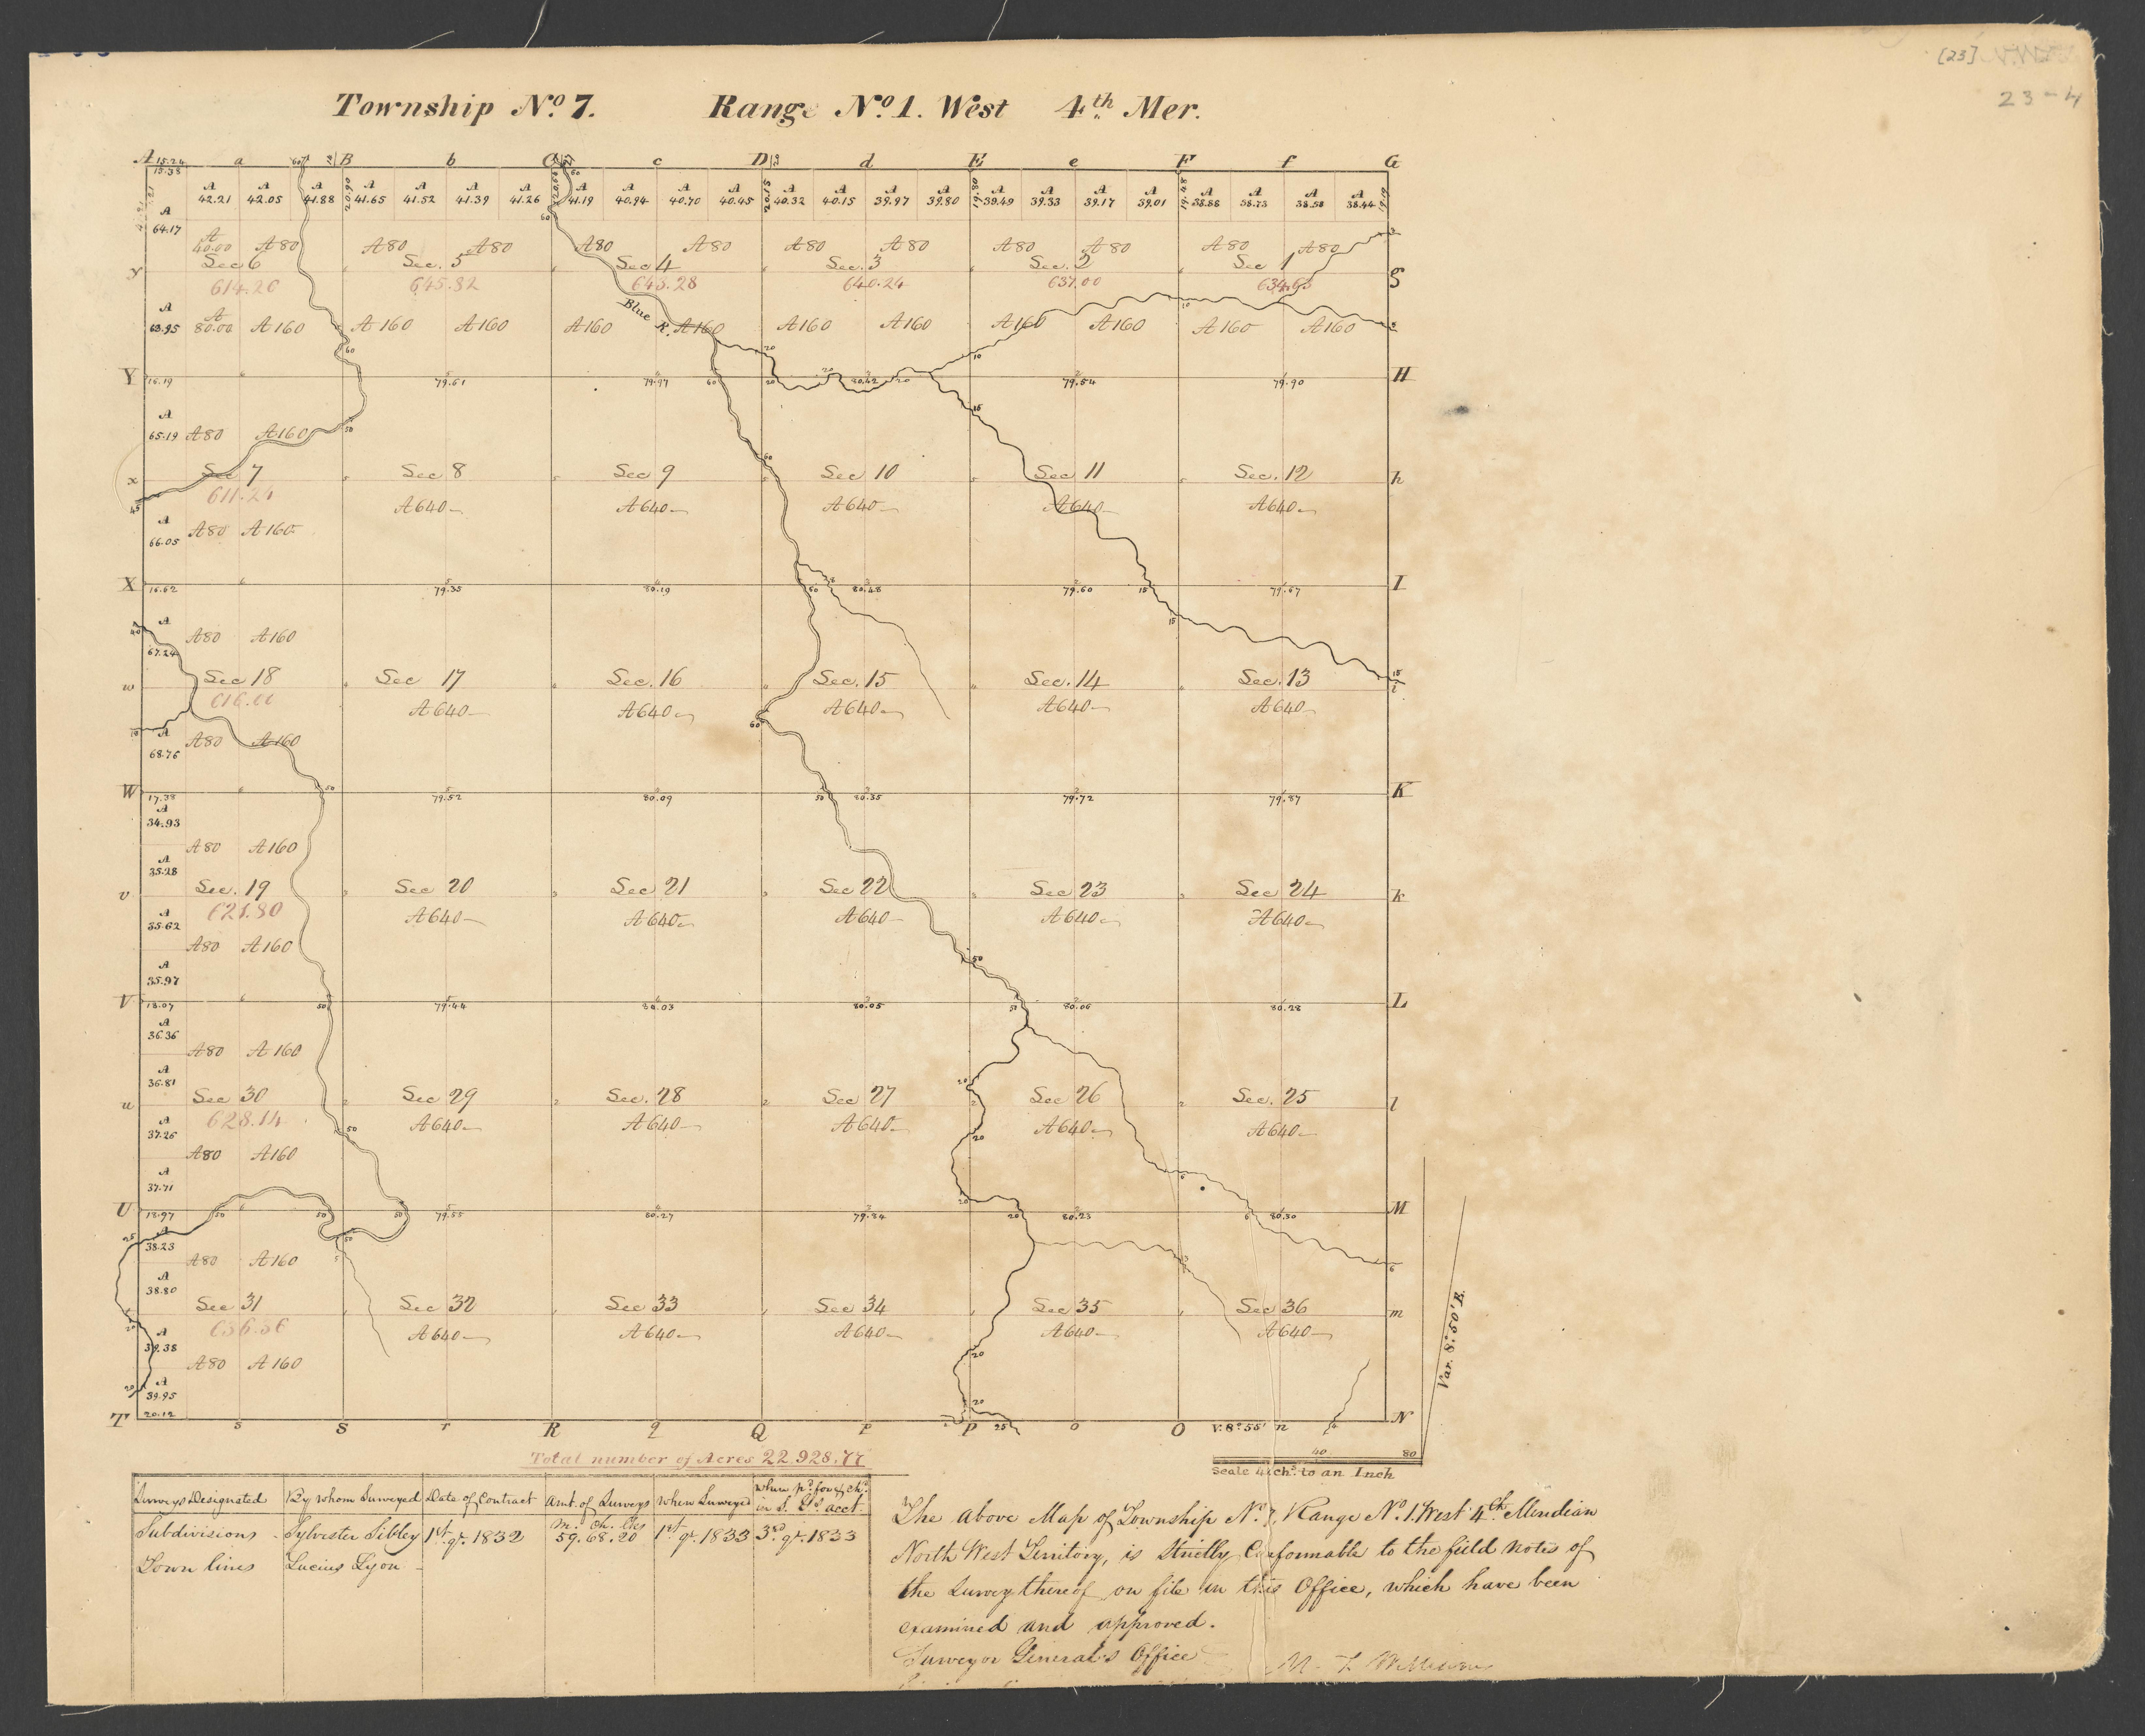 [23]
23-4
Township No. 7. Range No. 1. West 4th Mer.
A 15.24 a 60 B b C c D d E e F f G
15.38
A 42.21 A 42.05 A 41.88 20.90 A 41.65 A 41.52 A 41.39 A 41.26 A 41.19 A 40.94 A 40.70 A 40.45 20.15 A 40.32 A 40.15 A 39.97 A 39.80 19.80 A 39.49 A 39.33 A 39.17 A 39.01 19.48 A 38.88 A 38.73 A 38.58 A 38.44 19.19
A 64.17
A 40.00 A 80 A 80 A 80 A 80 A 80 A 80 A 80 A 80 A 80 A 80 A 80
Sec 6 Sec. 5 Sec 4 Sec. 3 Sec. 2 Sec 1
y g
614.20 645.82 643.28 640.24 637.00 634.63
Blue R.
A 63.95 A 80.00 A 160 A 160 A 160 A 160 A 160 A 160 A 160 A 160 A 160 A 160 A 160
60 20 10 10
Y 16.19 79.61 79.97 60 20 20 80.42 20 79.54 79.90 H
15
A 65.19 A 80 A 160 50
60
Sec 7 Sec 8 Sec 9 Sec 10 Sec 11 Sec. 12
x h
611.24 A 640 A 640 A 640 A 640 A 640
45
A 66.05 A 80 A 160
X 16.62 79.35 80.19 60 80.48 79.60 15 79.67 I
15
40 A 67.24 A 80 A 160
Sec 18 Sec 17 Sec. 16 Sec. 15 Sec. 14 Sec. 13 15
w i
616.00 A 640 A 640 A 640 A 640 A 640
60
10 A 68.76 A 80 A 160
W 17.38 50 79.52 80.09 50 80.35 79.72 79.87 K
A 34.93
A 80 A 160
A 35.28
Sec. 19 Sec 20 Sec 21 Sec 22 Sec 23 Sec 24
v k
A 35.62 621.80 A 640 A 640 A 640 A 640 A 640
A 80 A 160
50
A 35.97
V 18.07 50 79.44 80.03 80.05 51 80.06 80.28 L
A 36.36
A 80 A 160
A 36.81 20
Sec 30 Sec 29 Sec. 28 Sec 27 Sec 26 Sec. 25
u l
A 37.26 628.14 A 640 A 640 A 640 A 640 A 640
50 20
A 80 A 160
A 37.71 20 6
U 18.97 50 50 50 79.55 80.27 79.84 20 80.23 6 80.30 M
25 A 38.23 50
A 80 A 160 5 6
A 38.80
Sec 31 Sec 32 Sec 33 Sec 34 Sec 35 Sec 36
m
20 A 39.38 636.36 A 640 A 640 A 640 A 640 A 640
20
A 80 A 160
20 A 39.95
20.12 20
T s S r R q Q p P 25 o O V. 8° 55' n N
Var. 8° 50' E.
40 80
Scale 4 chs. to an Inch
Total number of Acres 22.928.77
Surveys Designated By whom Surveyed Date of Contract Amt. of Surveys When Surveyed When pd. for & chd. in S. Gs. acct.
m. ch. lks
Subdivisions Sylvester Sibley 1st qr. 1832 59.68.20 1st qr. 1833 3rd qr. 1833
Town lines Lucius Lyon
The above Map of Township No. 7, Range No. 1. West 4th Meridian
North West Territory, is Strictly Conformable to the field notes of
the Survey thereof on file in this Office, which have been
examined and approved.
Surveyor General's Office M. T. Williams